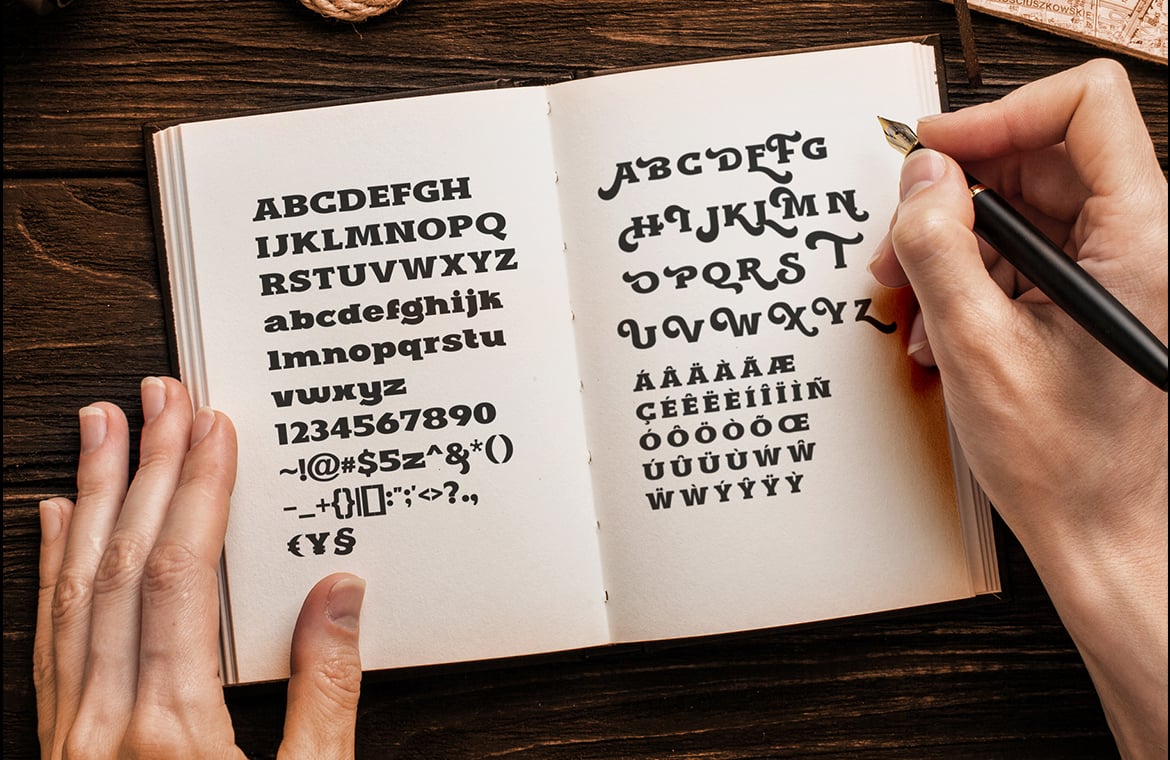 ABCDEFGH
IJKLMNOPQ
RSTUVWXYZ
abcdefghijk
lmnopqrstu
vwxyz
1234567890
~!@#$5z^&*()
-_+{}|[]:";'<>?.,
€¥§
ABCDEFG
HIJKLMN
OPQRST
UVWXYZ
ÁÂÄÀÃÆ
ÇÉÊËÈÍÎÏÌÑ
ÓÔÖÒÕŒ
ÚÛÜÙẂŴ
ẄẀÝŶŸỲ